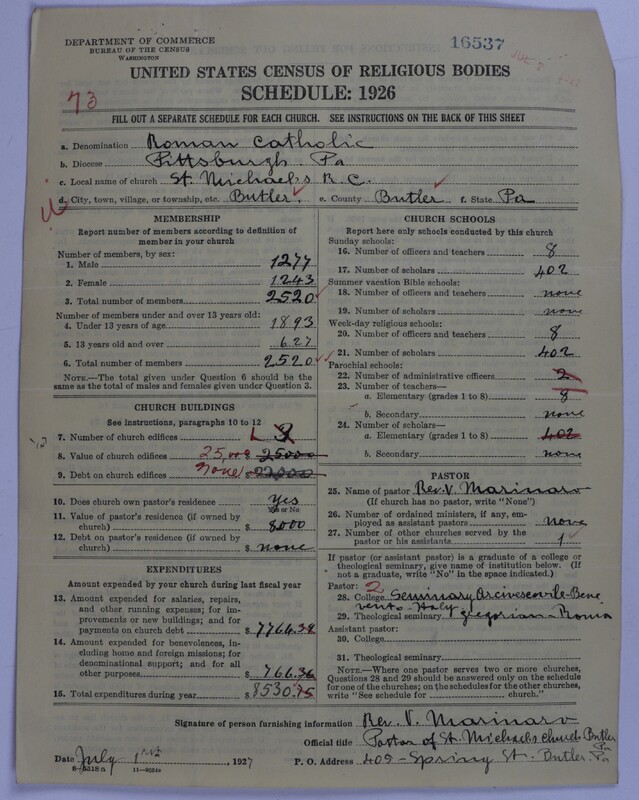 DEPARTMENT OF COMMERCE
BUREAU OF THE CENSUS
WASHINGTON
16537
UNITED STATES CENSUS OF RELIGIOUS BODIES
SCHEDULE: 1926
73
FILL OUT A SEPARATE SCHEDULE FOR EACH CHURCH. SEE INSTRUCTIONS ON THE BACK OF THIS SHEET
a. Denomination Roman Catholic
b. Diocese Pittsburgh. Pa
c. Local name of church St. Michaels R.C.
d. City, town, village, or township, etc. Butler. e. County Butler f. State Pa
MEMBERSHIP
Report number of members according to definition of
member in your church
Number of members, by sex:
1. Male 1277
2. Female 1243
3. Total number of members 2520
Number of members under and over 13 years old:
4. Under 13 years of age 1893
5. 13 years old and over 627
6. Total number of members 2520
NOTE.—The total given under Question 6 should be the
same as the total of males and females given under Question 3.
CHURCH BUILDINGS
See instructions, paragraphs 10 to 12
7. Number of church edifices
8. Value of church edifices 25,000 25000
9. Debt on church edifices none 22000
10. Does church own pastor's residence Yes
Yes or No
11. Value of pastor's residence (if owned by
church) $ 8000
12. Debt on pastor's residence (if owned by
church) $ none
EXPENDITURES
Amount expended by your church during last fiscal year
13. Amount expended for salaries, repairs,
and other running expenses; for im-
provements or new buildings; and for
payments on church debt $ 7764.39
14. Amount expended for benevolences,
including home and foreign missions; for
denominational support; and for all
other purposes $ 766.36
15. Total expenditures during year $ 8530.75
CHURCH SCHOOLS
Report here only schools conducted by this church
Sunday schools:
16. Number of officers and teachers 8
17. Number of scholars 402
Summer vacation Bible schools:
18. Number of officers and teachers none
19. Number of scholars none
Week-day religious schools:
20. Number of officers and teachers 8
21. Number of scholars 402
Parochial schools:
22. Number of administrative officers 2
23. Number of teachers—
a. Elementary (grades 1 to 8) 8
b. Secondary none
24. Number of scholars—
a. Elementary (grades 1 to 8) 402
b. Secondary none
PASTOR
25. Name of pastor Rev. V. Marinaro
(If church has no pastor, write "None")
26. Number of ordained ministers, if any, em-
ployed as assistant pastors none
27. Number of other churches served by the
pastor or his assistants 1
If pastor (or assistant pastor) is a graduate of a college or
theological seminary, give name of institution below. (If
not a graduate, write "No" in the space indicated.)
Pastor: 2
28. College Seminary Arcivescovile-Bene
vento-Italy
29. Theological seminary Gregorian-Roma
Assistant pastor:
30. College
31. Theological seminary
NOTE.—Where one pastor serves two or more churches,
Questions 28 and 29 should be answered only on the schedule
for one of the churches; on the schedules for the other churches,
write "See schedule for church."
Signature of person furnishing information Rev. V. Marinaro
Official title Pastor of St. Michaels church Butler Pa
Date July 1st, 1927 P. O. Address 409 - Spring St. Butler. Pa
8-5318a 11-9034a